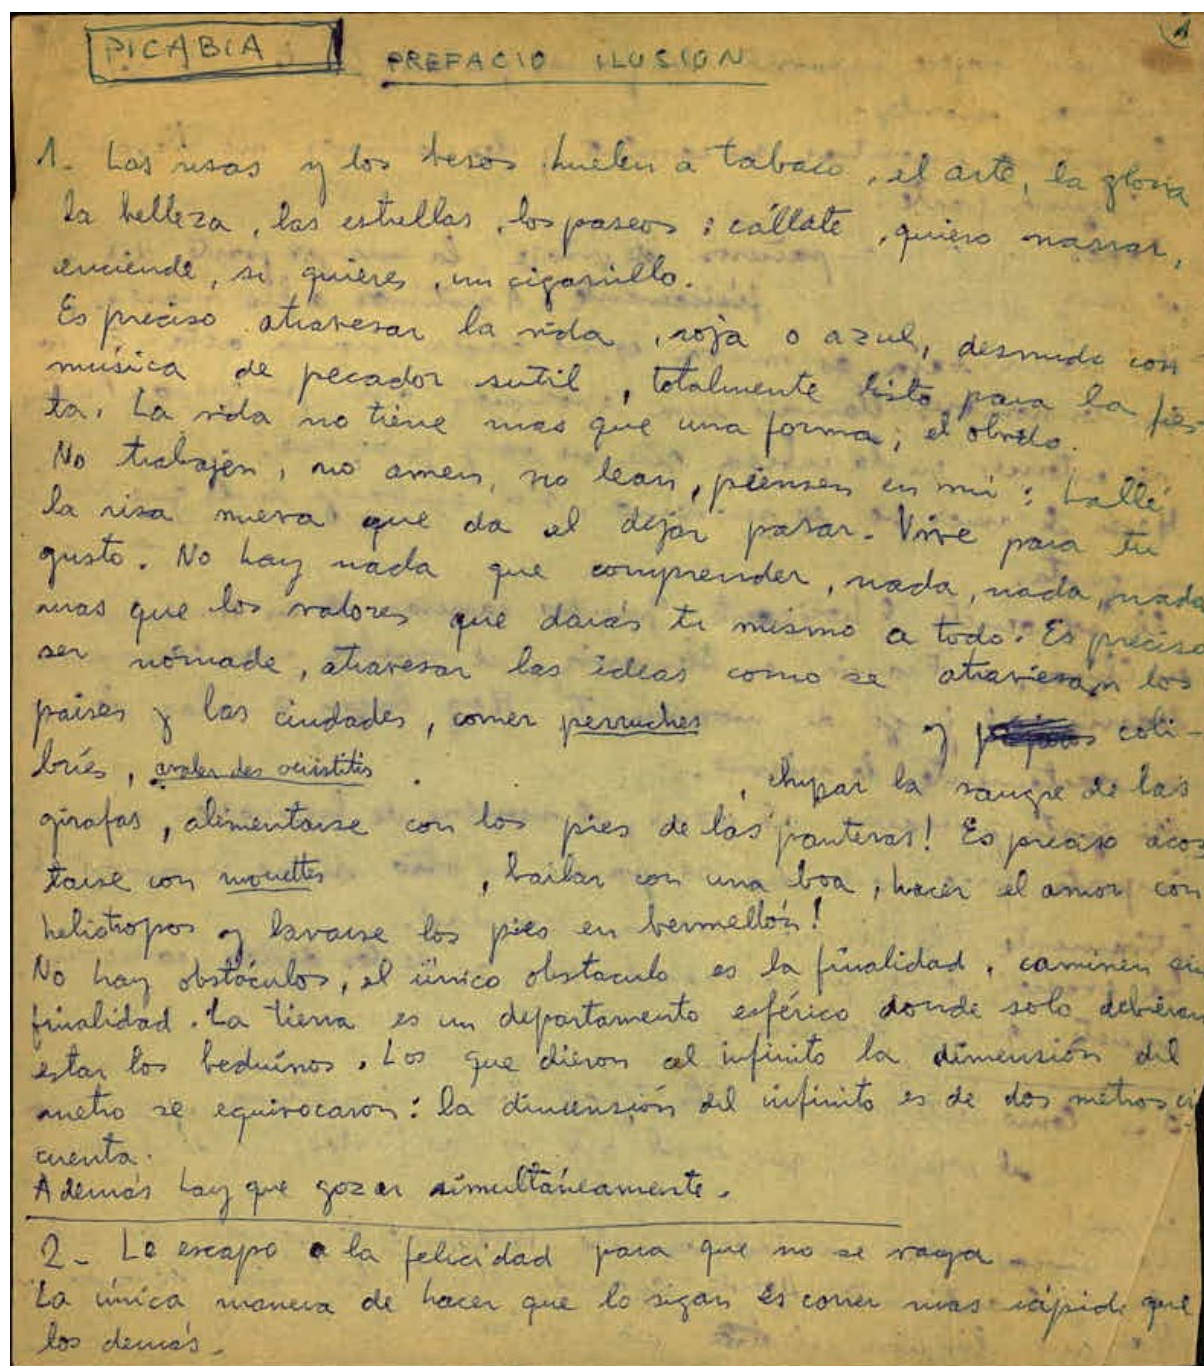 PICABIA
PREFACIO ILUSION
1
1- Las risas y los besos huelen a tabaco, el arte, la gloria
la belleza, las estrellas, los paseos : cállate, quiero narrar,
enciende, si quieres, un cigarrillo.
Es preciso atravesar la vida, roja o azul, desnudo con
música de pecador sutil, totalmente listo para la fies-
ta. La vida no tiene mas que una forma; el olvido.
No trabajen, no amen, no lean, piensen en mi : hallé
la risa nueva que da el dejar pasar. Vive para tu
gusto. No hay nada que comprender, nada, nada, nada
mas que los valores que darás tu mismo a todo. Es preciso
ser nómade, atravesar las ideas como se atraviesan los
países y las ciudades, comer perruches y coli-
bríes, avaler des ouistitis , chupar la sangre de las
girafas, alimentarse con los pies de las panteras! Es preciso acos
tarse con mouettes , bailar con una boa, hacer el amor con
heliotropos y lavarse los pies en bermellón!
No hay obstáculos, el único obstaculo es la finalidad, caminen sin
finalidad. La tierra es un departamento esférico donde solo debieran
estar los beduínos. Los que dieron al infinito la dimensión del
metro se equivocaron : la dimensión del infinito es de dos metros cin
cuenta.
Además hay que gozar simultáneamente.
2- Le escapo a la felicidad para que no se vaya
La única manera de hacer que lo sigan es correr mas rápido que
los demás.